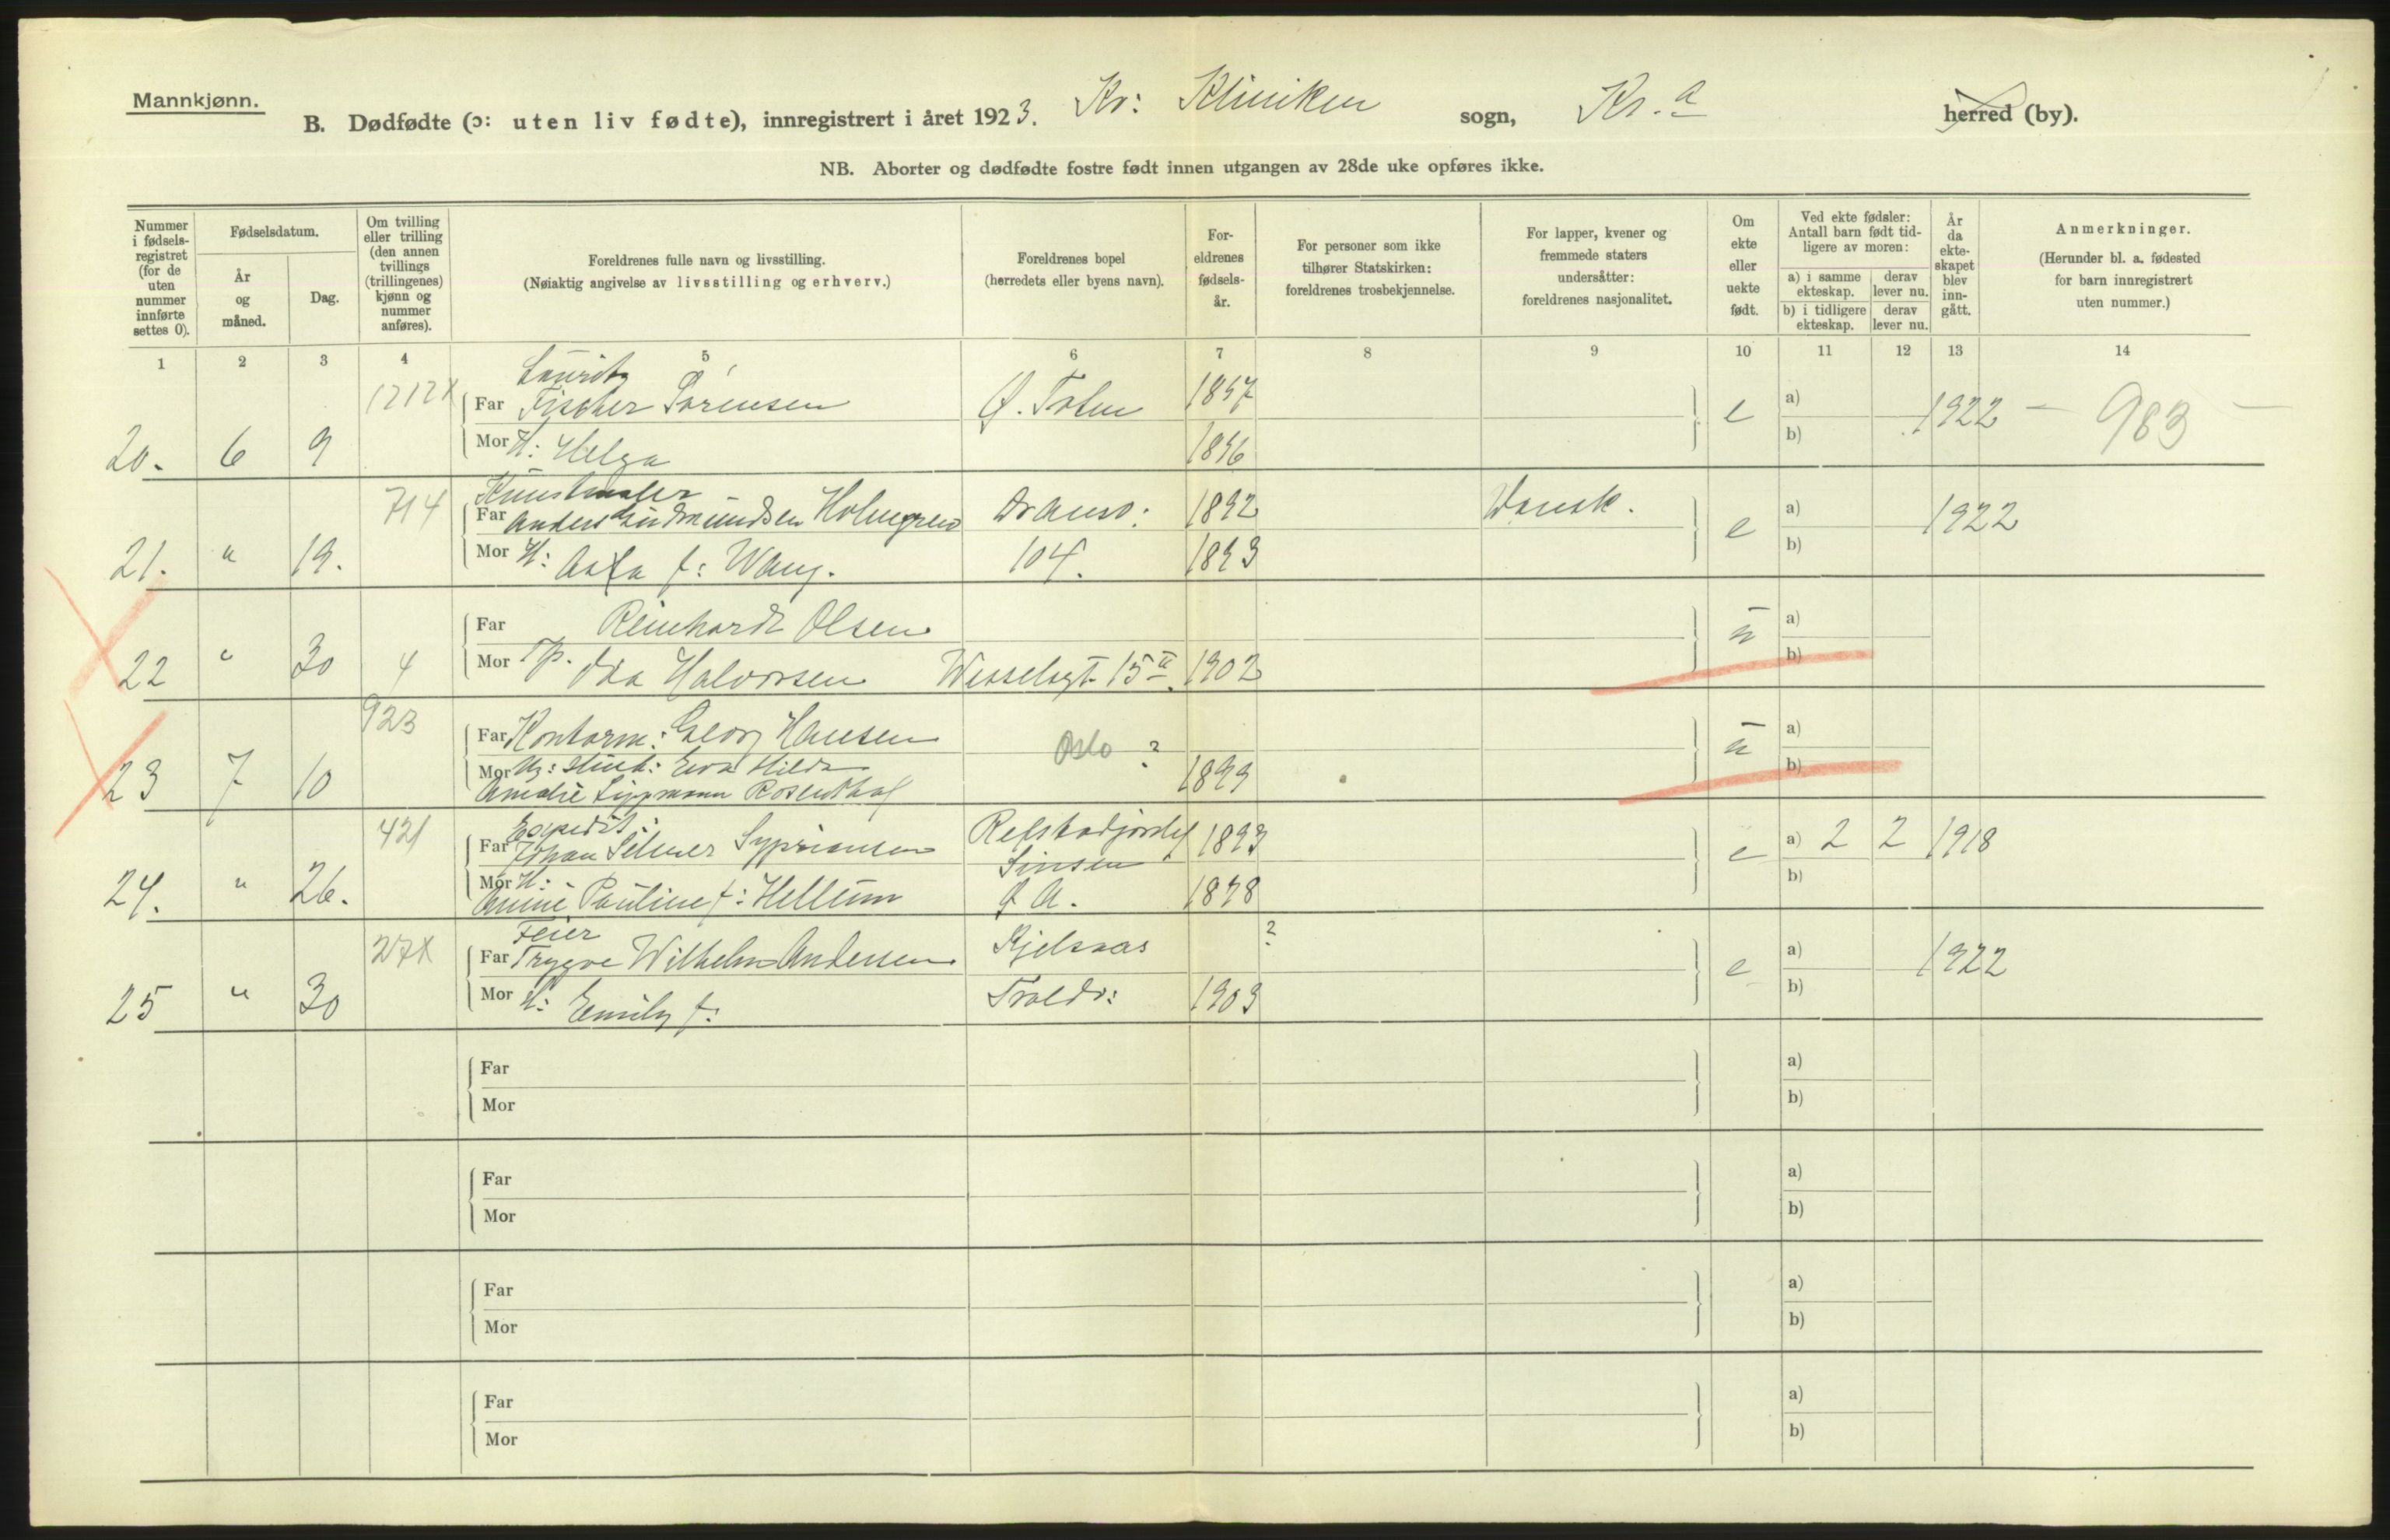 Mannkjønn.
B. Dødfødte (ɔ: uten liv fødte), innregistrert i året 1923. Kv: Kliniken sogn, Kr.a herred (by).
NB. Aborter og dødfødte fostre født innen utgangen av 28de uke opføres ikke.
Nummer i fødsels-registret (for de uten nummer innførte settes 0).
Fødselsdatum.
År og måned.
Dag.
Om tvilling eller trilling (den annen tvillings (trillingenes) kjønn og nummer anføres).
Foreldrenes fulle navn og livsstilling.
(Nøiaktig angivelse av livsstilling og erhverv.)
Foreldrenes bopel
(herredets eller byens navn).
For-eldrenes fødsels-år.
For personer som ikke tilhører Statskirken: foreldrenes trosbekjennelse.
For lapper, kvener og fremmede staters undersåtter: foreldrenes nasjonalitet.
Om ekte eller uekte født.
Ved ekte fødsler: Antall barn født tid-ligere av moren:
a) i samme ekteskap.
derav lever nu.
b) i tidligere ekteskap.
derav lever nu.
År da ekte-skapet blev inn-gått.
Anmerkninger.
(Herunder bl. a. fødested for barn innregistrert uten nummer.)
1 2 3 4 5 6 7 8 9 10 11 12 13 14
Lauritz
Far Fischer Sørensen Ø. Toten 1897 e a) 1922 — 983 —
20. 6 9 Mor H: Helga 1896 b)
714 Kunstmaler
Far Anders Holmgren 1892 Dansk. e a) 1922
21. " 19. Mor H: f: Wang. 104. 1893 b)
Far Reinhardt Olsen ü a)
22 " 30 4 Mor Tp. Halvorsen Wesselsgt 15 II. 1902 b)
923
Far Kontorm: Georg Hansen Oslo ? ü a)
23 7 10 Mor Ug: Stud: Eva Hilda 1899 b)
Amalie Lippmann Rosenthal
421 Expedit:
Far Johan Selmer Sypriansen Refstadjordet 1893 e a) 2 2 1918
Sinsen
24. " 26. Mor H: b)
Pauline f: Hellum Ø A. 1898
27X Feier
Far Trygve Wilhelm Andersen Kjelsaas ? e a) 1922
25 " 30 Mor H: Emily f: 1903 b)
Far a)
Mor b)
Far a)
Mor b)
Far a)
Mor b)
Far a)
Mor b)